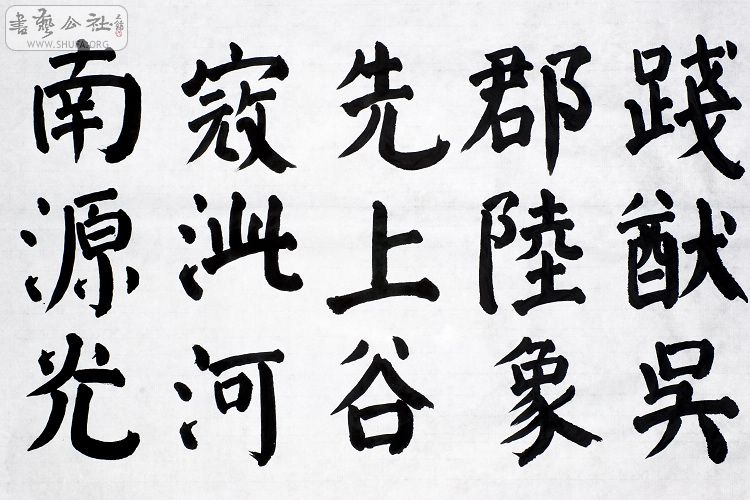 踐猷吳
郡陸象
先上谷
寇泚河
南源光
書藝公社
WWW.SHUFA.ORG